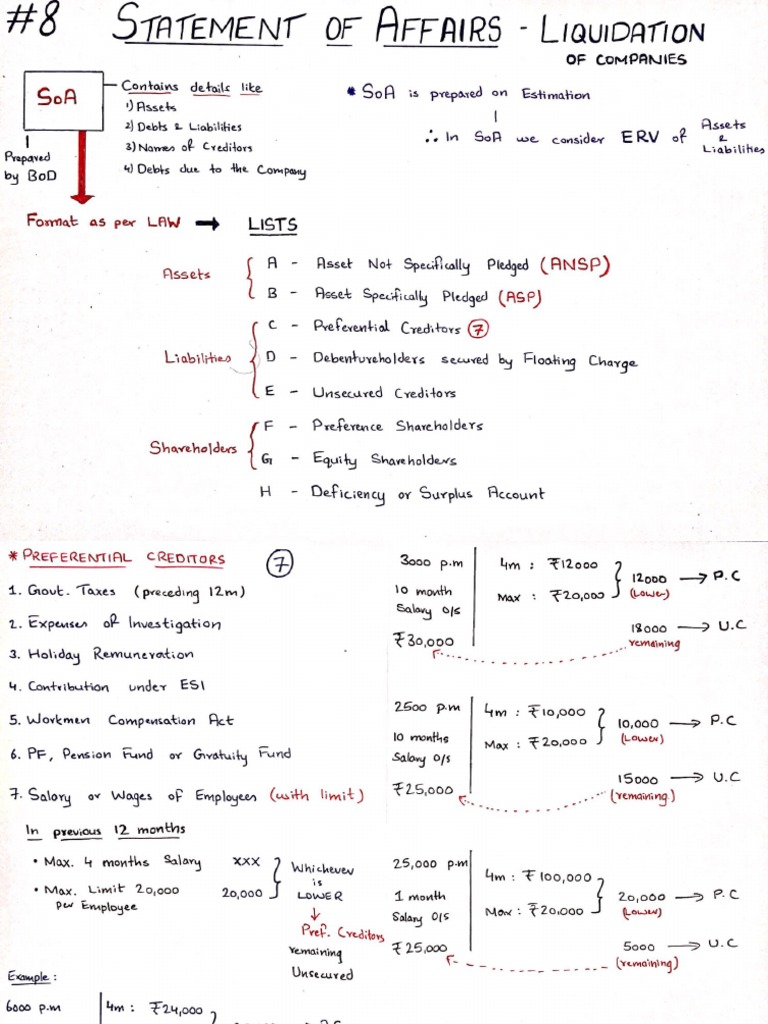 #8 STATEMENT OF AFFAIRS - LIQUIDATION
OF COMPANIES
SoA
Prepared
by BoD
Contains details like
1) Assets
2) Debts & Liabilities
3) Names of Creditors
4) Debts due to the Company
* SoA is prepared on Estimation
∴ In SoA we consider ERV of Assets & Liabilities
Format as per LAW → LISTS
Assets
A - Asset Not Specifically Pledged (ANSP)
B - Asset Specifically Pledged (ASP)
Liabilities
C - Preferential Creditors 7
D - Debentureholders secured by Floating Charge
E - Unsecured Creditors
Shareholders
F - Preference Shareholders
G - Equity Shareholders
H - Deficiency or Surplus Account
* PREFERENTIAL CREDITORS 7
1. Govt. Taxes (preceding 12m)
2. Expenses of Investigation
3. Holiday Remuneration
4. Contribution under ESI
5. Workmen Compensation Act
6. PF, Pension Fund or Gratuity Fund
7. Salary or Wages of Employees (with limit)
In previous 12 months
• Max. 4 months Salary XXX
• Max. Limit 20,000 20,000
per Employee
Whichever
is
LOWER
↓
Pref. Creditors
remaining
Unsecured
Example:
6000 p.m
4m: ₹24,000
3000 p.m
10 month
Salary O/S
₹30,000
4m : ₹12000
Max : ₹20,000
12000 → P.C
(Lower)
18000 → U.C
remaining
2500 p.m
10 months
Salary O/S
₹25,000
4m : ₹10,000
Max : ₹20,000
10,000 → P.C
(Lower)
15000 → U.C
(remaining)
25,000 p.m
1 month
Salary O/S
₹25,000
4m : ₹100,000
Max : ₹20,000
20,000 → P.C
(Lower)
5000 → U.C
(remaining)